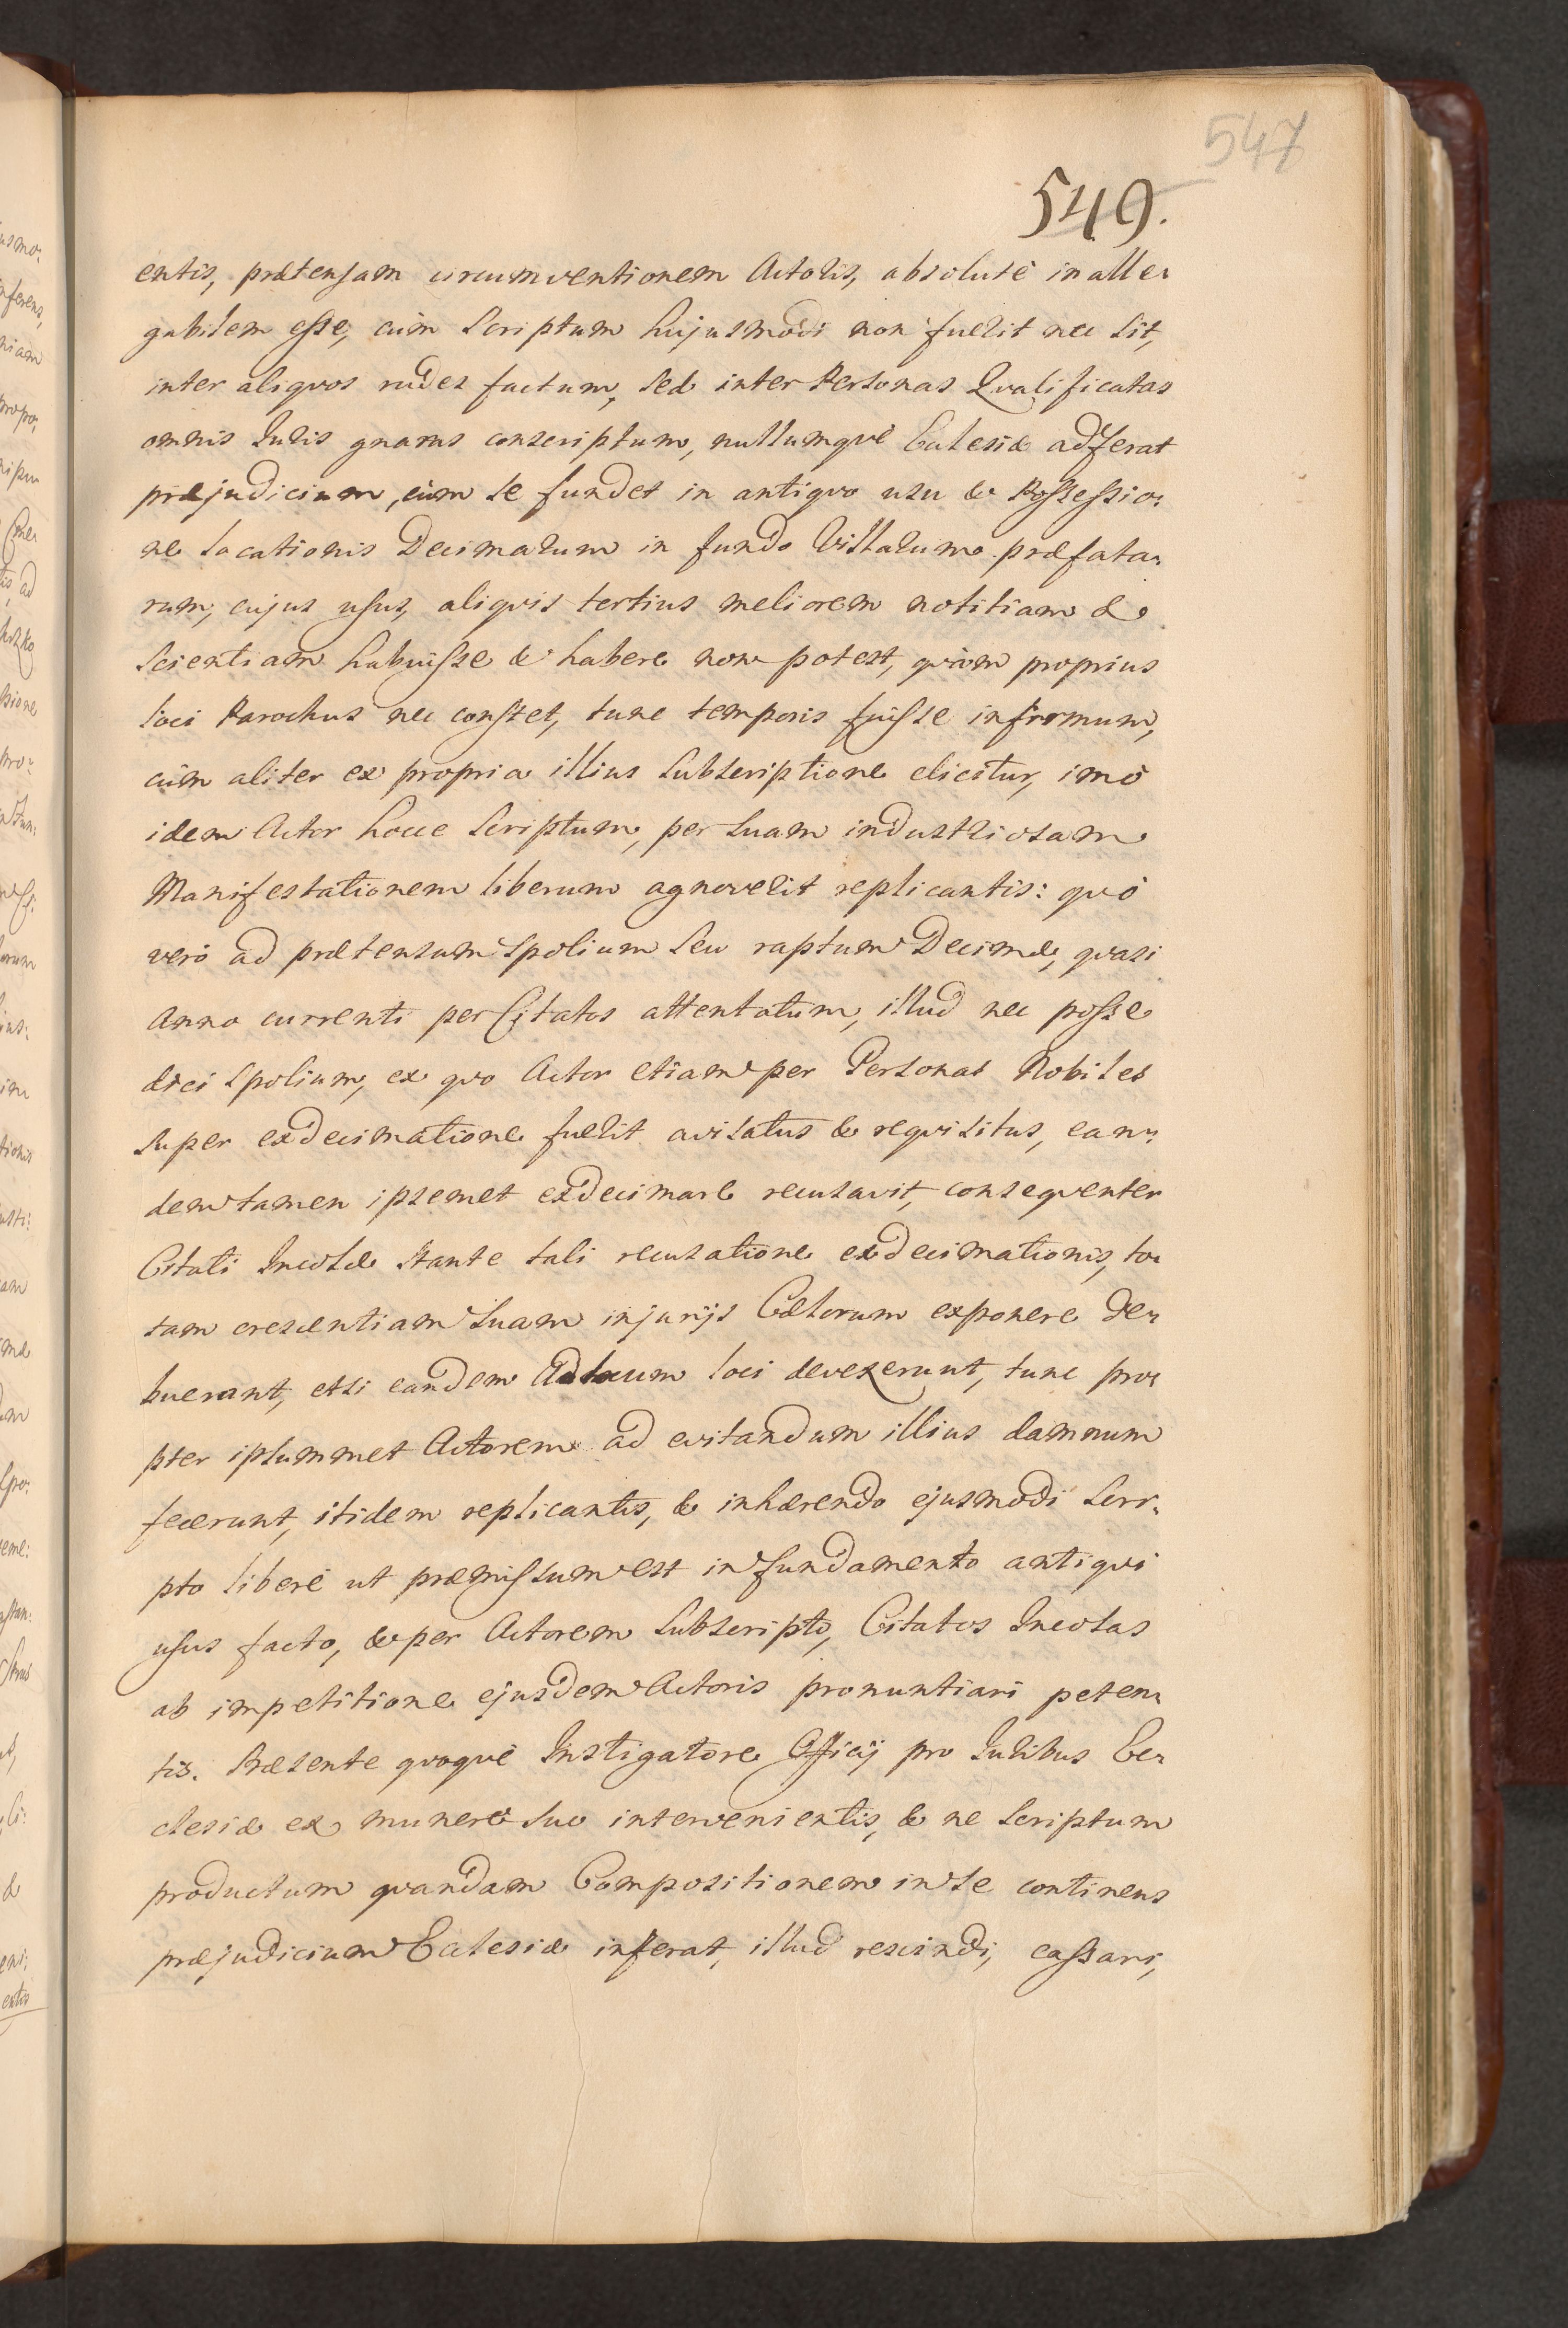 547
549.
entis, prætensam circumventionem Actoris, absolutè inalle-
gabilem esse, cùm Scriptum hujusmodi non fuerit nec sit,
inter aliquos rudes factum, sed inter Personas Qualificatas
omnis Iuris gnaras conscriptum, nullumquè Eclesiæ adferat
præjudicium, cùm se fundet in antiquo usu & Possessio-
ne locationis Decimarum in fundo Villarum præfata-
rum, cujus usus, aliquis tertius meliorem notitiam &
Scientiam habuisse & habere non potest, quàm proprius
loci Parochus nec constet, tunc temporis fuisse infirmum,
cùm aliter ex propria illius Subscriptione elicitur, imò
idem Actor hocce Scriptum, per suam industriosam
Manifestationem liberum agnoverit replicantis: quò
verò ad prætensum Spolium seu raptum Decimæ, quasi
Anno currenti per Citatos attentatum, illud nec posse
dici spolium, ex quo Actor etiam per Personas Nobiles
super exdecimatione fuerit avisatus & requisitus, ean-
dem tamen ipsemet exdecimare recusavit, consequenter
Citati Incolæ stante tali recusatione exdecimationis, to-
tam crescentiam suam injurijs Cælorum exponere de-
buerant, etsi eandem Ad locum loci devexerunt, tunc pro-
pter ipsummet Actorem ad evitandum illius damnum
fecerunt, itidem replicantis, & inhærendo ejusmodi Scri-
pto liberè ut præmissum est in fundamento antiqui
usus facto, & per Actorem Subscripto, Citatos Incolas
ab impetitione ejusdem Actoris pronuntiari peten-
tis. Præsente quoquè Instigatore Officij pro Iuribus Ec-
clesiæ ex munere suo intervenientis, & ne Scriptum
productum quandam Compositionem in se continens
præjudicium Eclesiæ inferat, illud rescindi, cassari,